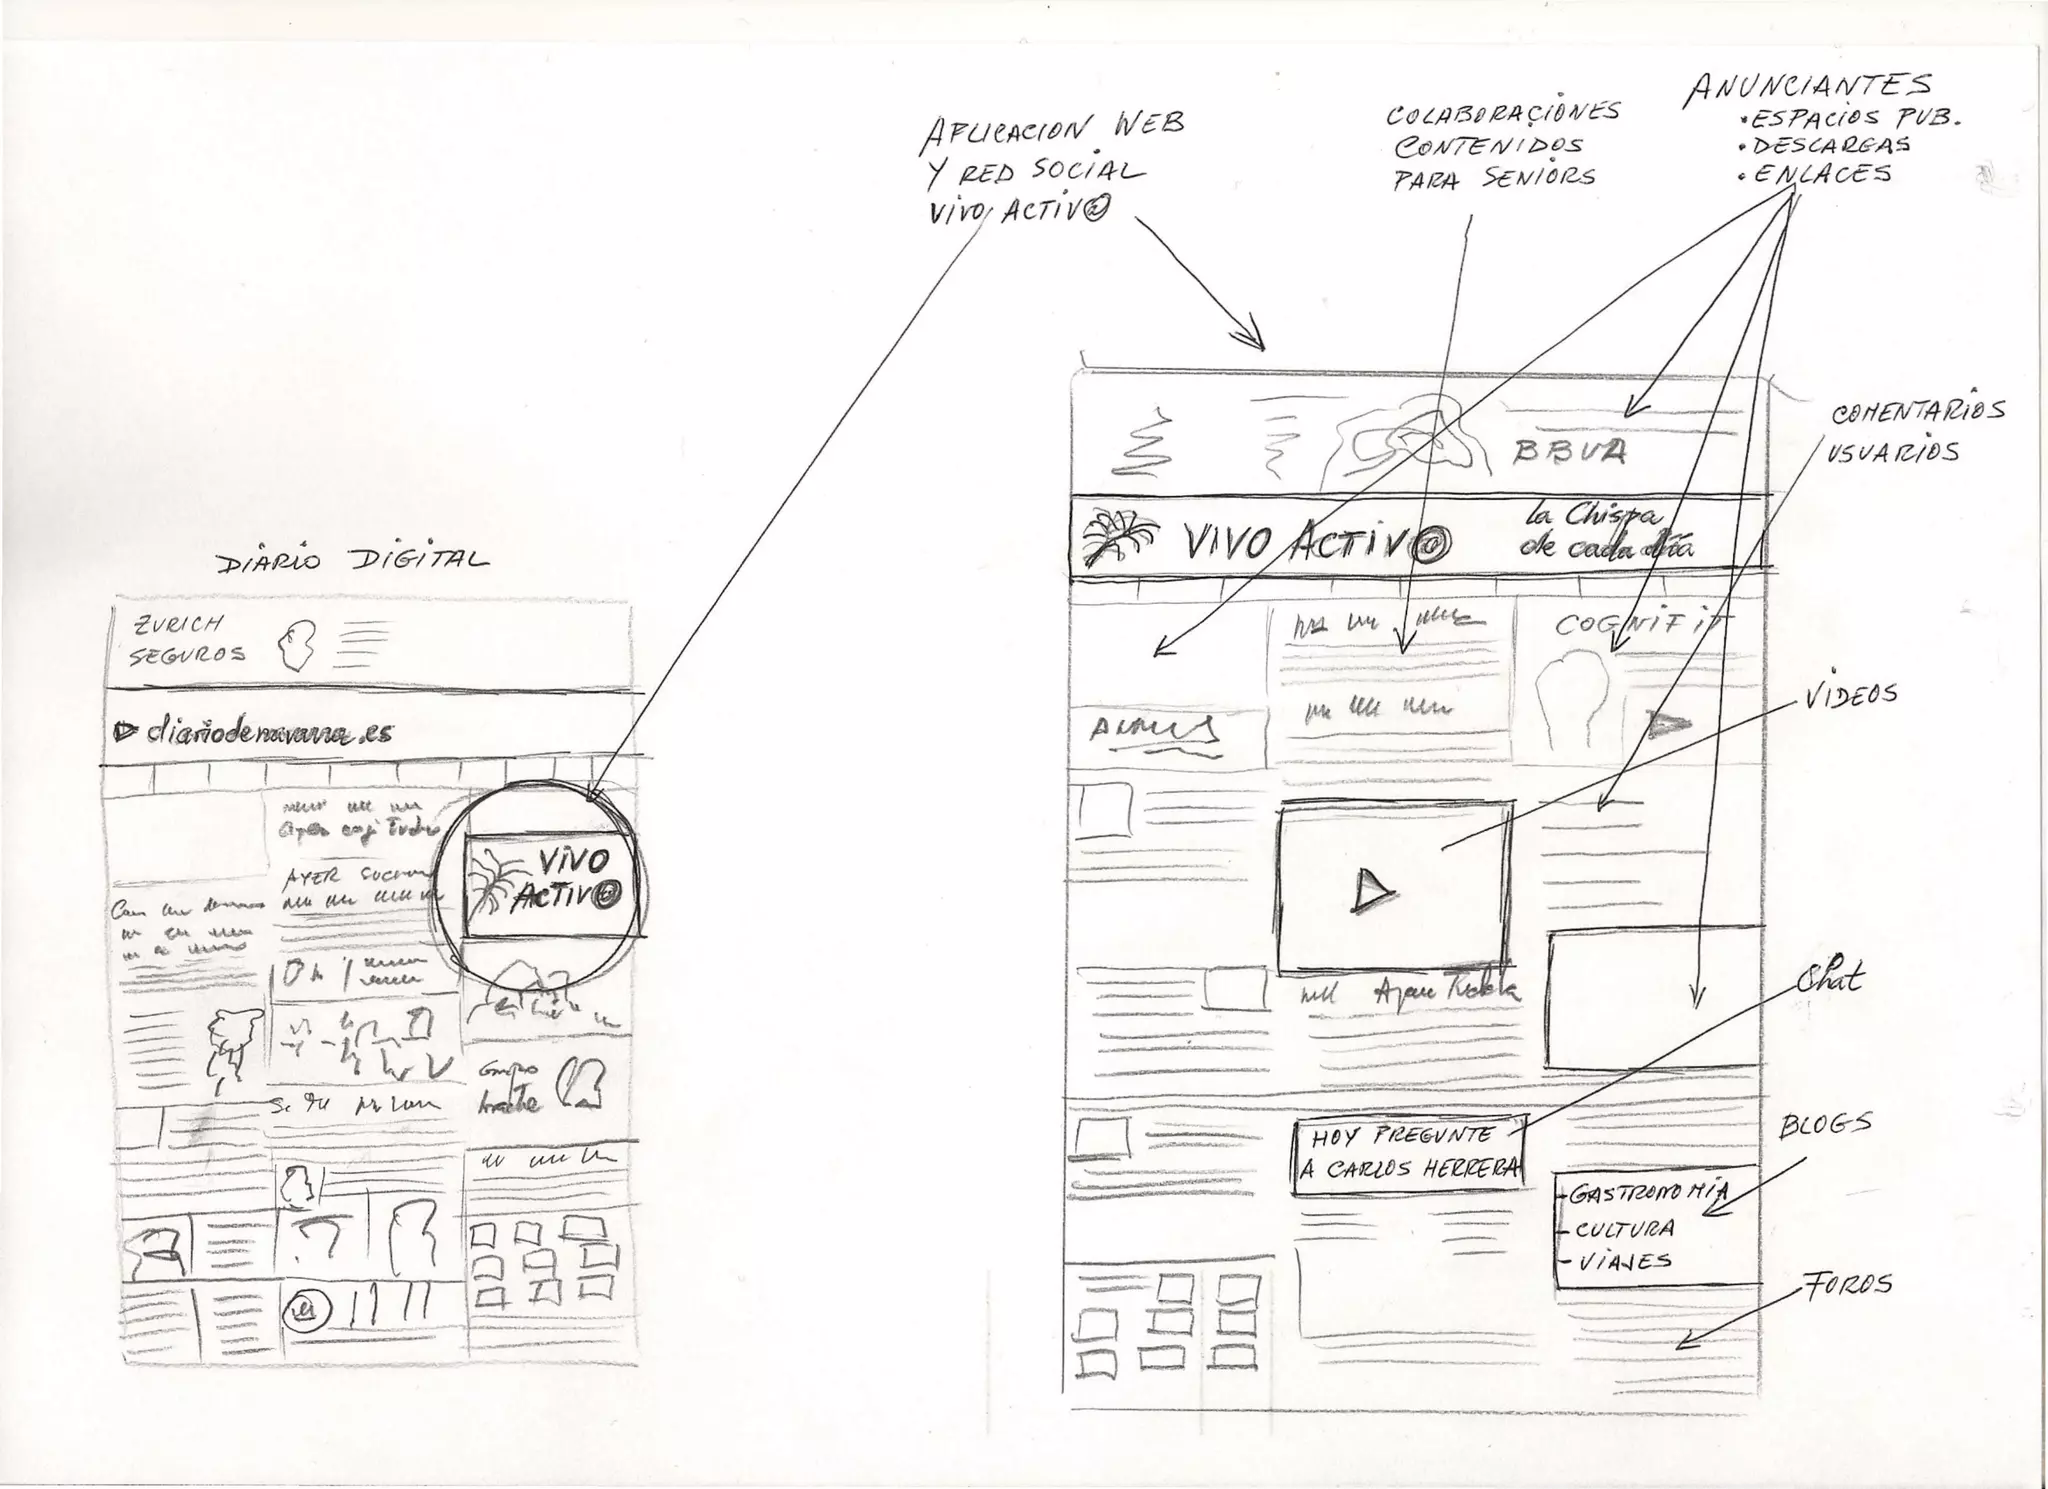 APLICACION WEB
Y RED SOCIAL
VIVO ACTIV@
COLABORACIONES
CONTENIDOS
PARA SENIORS
ANUNCIANTES
• ESPACIOS PUB.
• DESCARGAS
• ENLACES
COMENTARIOS
USUARIOS
VIDEOS
Chat
BLOGS
FOROS
DIARIO DIGITAL
ZURICH
SEGUROS
diariodenavarra.es
AYER
VIVO
ACTIV@
BBVA
VIVO ACTIV@
la Chispa
de cada día
COGNIFIT
HOY PREGUNTE
A CARLOS HERRERA
- GASTRONOMÍA
- CULTURA
- VIAJES